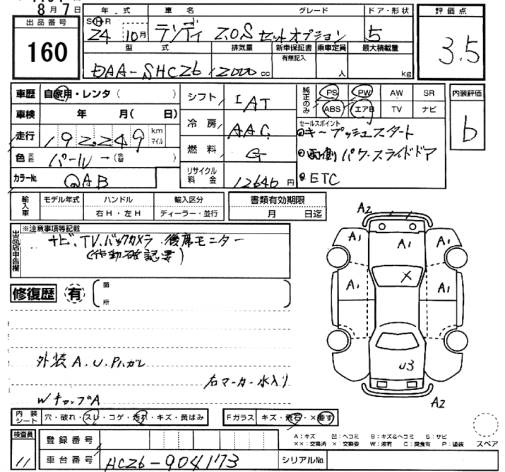 8月7日
出品番号
160
年 式 車 名 グレード ドア・形状
24 10月 ランディ 2.0S セットオプション 5
型 式 排気量 新車保証書 乗車定員 最大積載量
有無記入
DAA-SHC26 2000 cc 人 kg
評価点
3.5
車歴 自家用・レンタ( )
車検 年 月( )
走行 192,249 km マイル
色 パール→( )
カラーNo. QAB
シフト IAT
冷房 AAC
燃料 G
リサイクル料金 12640円
純正のみ
PS PW AW SR
ABS エアB TV ナビ
セールスポイント
キープッシュスタート
両側パワースライドドア
ETC
内装評価
b
輸入車 モデル年式 ハンドル 輸入区分
年 右H・左H ディーラー・並行
書類有効期限
月 日迄
※注意事項等記載
ナビ、TV、バックカメラ 後席モニター
(作動確認要)
修復歴 有
箇所
外装A.U.P.ガレ
右マーカー水入り
WチップA
A2
A1 A1
A1 X A1
U3
A2
内装シート 穴・破れ・スレ・コゲ・汚れ・キズ・黄ばみ
Fガラス キズ・飛石・×要す
検査員 11
登録番号
車台番号 HC26-904173
シリアルNo.
スペア